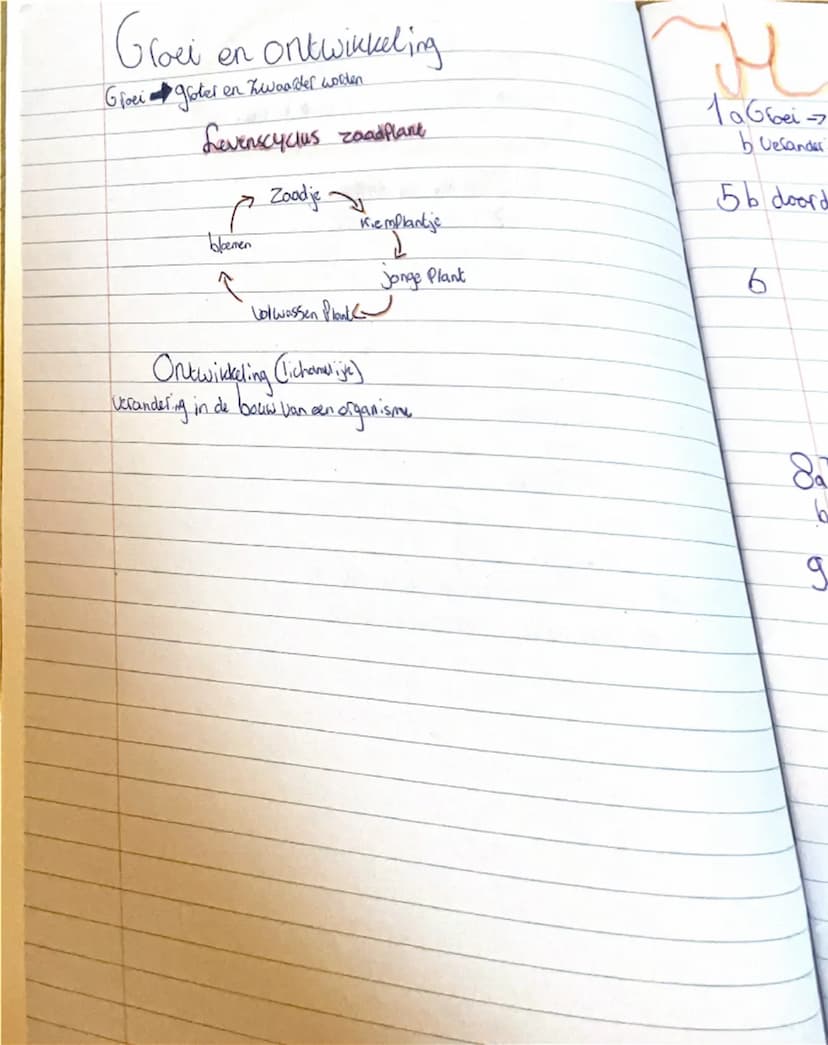 Groei en ontwikkeling
Groei → groter en zwaarder worden
Levenscyclus zaadplant
Zaadje
kiemplantje
bloemen
jonge Plant
Volwassen Plant
Ontwikkeling (lichamelijk)
verandering in de bouw van een organisme
1 a Groei →
b Verander
5 b doord
6
8a
b
9